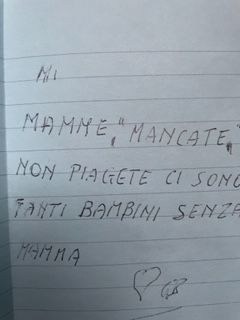 MI
MAMME, "MANCATE,"
NON PIAGETE CI SONO
TANTI BAMBINI SENZA
MAMMA